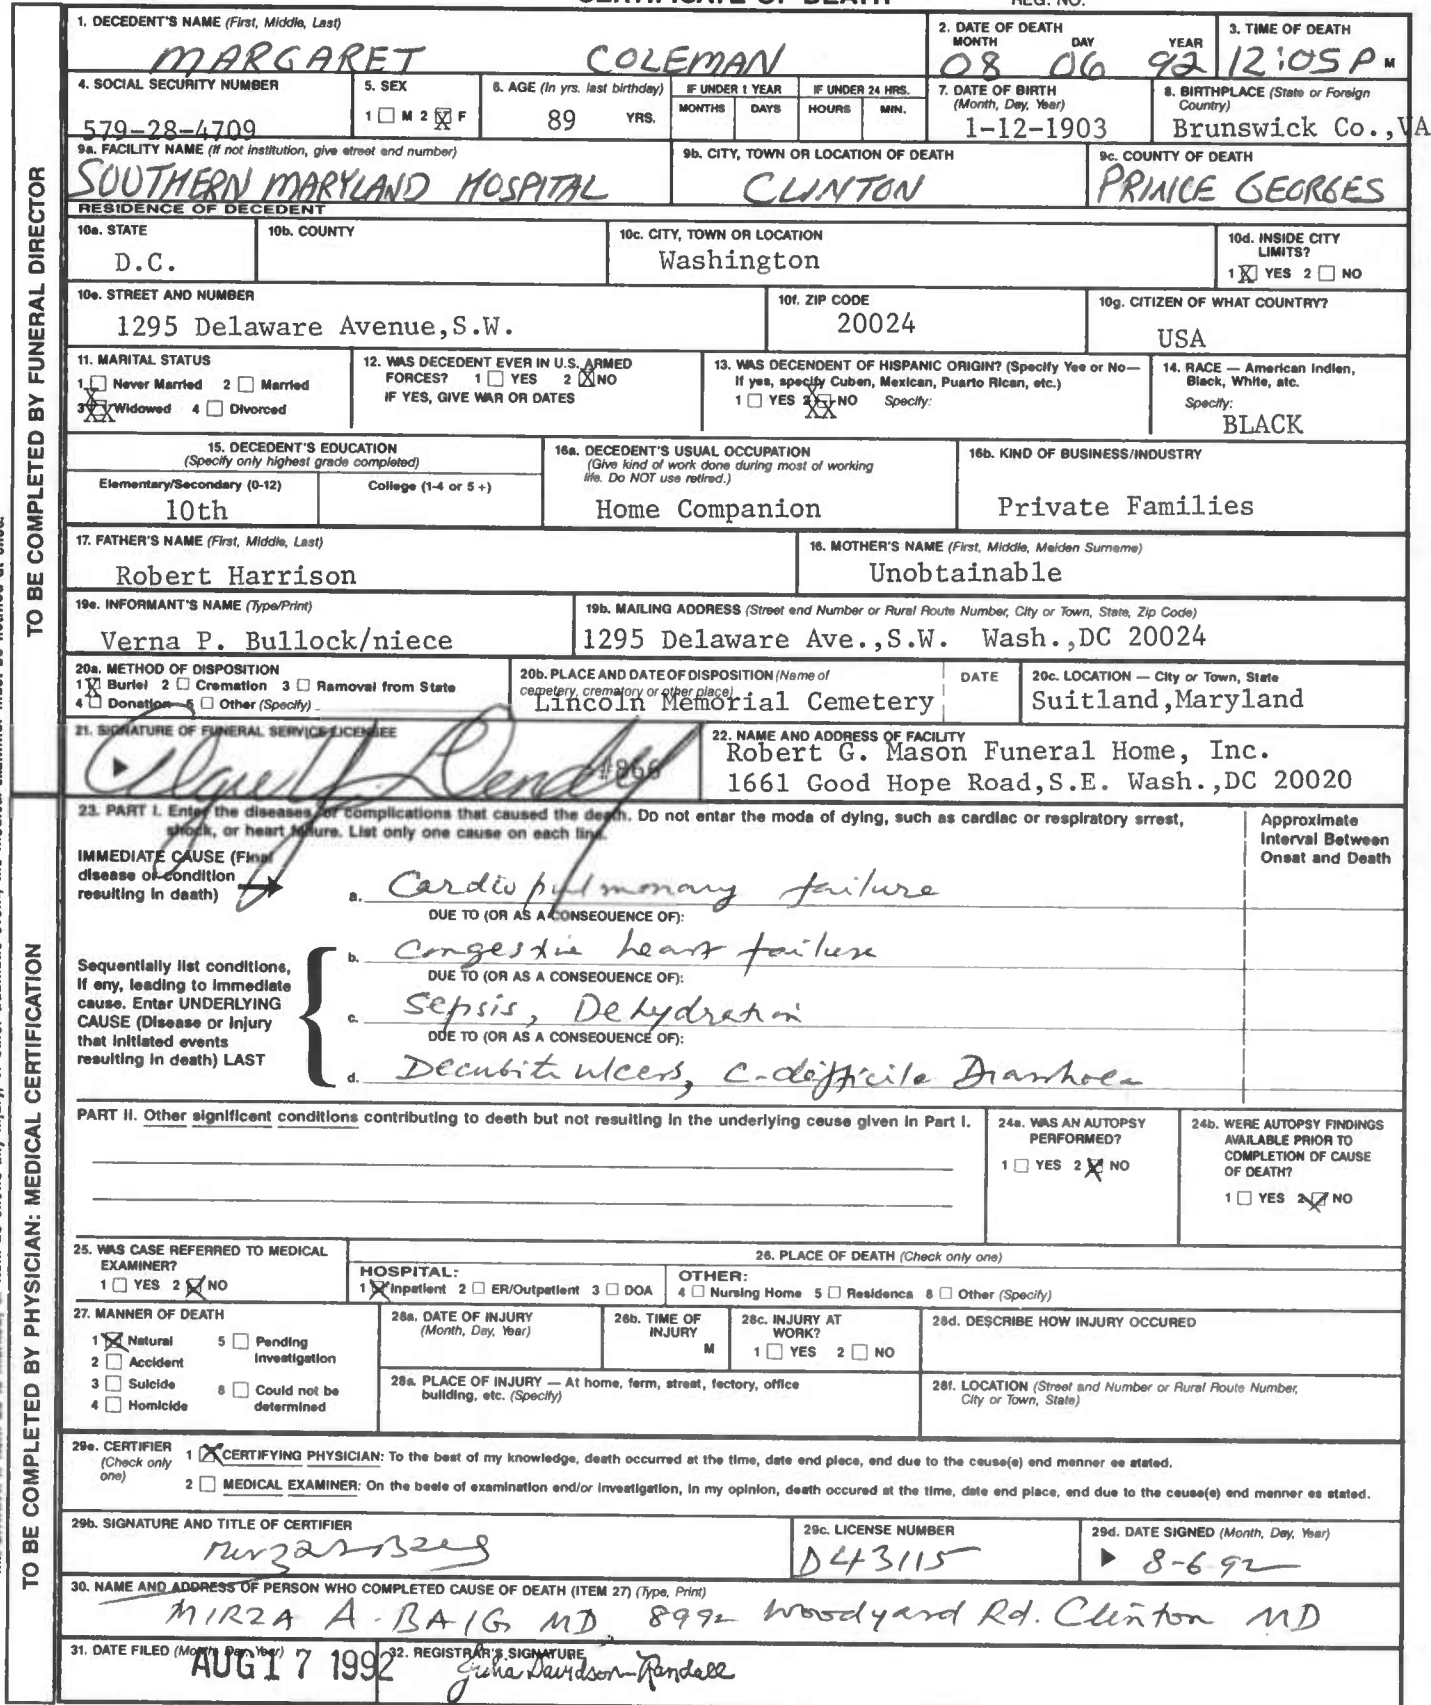 CERTIFICATE OF DEATH REG. NO.
TO BE COMPLETED BY FUNERAL DIRECTOR
1. DECEDENT'S NAME (First, Middle, Last)
MARGARET COLEMAN
2. DATE OF DEATH
MONTH DAY YEAR
08 06 92
3. TIME OF DEATH
12:05 P M
4. SOCIAL SECURITY NUMBER
579-28-4709
5. SEX
1 M 2 X F
6. AGE (In yrs. last birthday)
89 YRS.
IF UNDER 1 YEAR
MONTHS DAYS
IF UNDER 24 HRS.
HOURS MIN.
7. DATE OF BIRTH
(Month, Day, Year)
1-12-1903
8. BIRTHPLACE (State or Foreign
Country)
Brunswick Co.,VA
9a. FACILITY NAME (If not institution, give street and number)
SOUTHERN MARYLAND HOSPITAL
9b. CITY, TOWN OR LOCATION OF DEATH
CLINTON
9c. COUNTY OF DEATH
PRINCE GEORGES
RESIDENCE OF DECEDENT
10a. STATE
D.C.
10b. COUNTY
10c. CITY, TOWN OR LOCATION
Washington
10d. INSIDE CITY
LIMITS?
1 X YES 2 NO
10e. STREET AND NUMBER
1295 Delaware Avenue,S.W.
10f. ZIP CODE
20024
10g. CITIZEN OF WHAT COUNTRY?
USA
11. MARITAL STATUS
1 Never Married 2 Married
3 X Widowed 4 Divorced
12. WAS DECEDENT EVER IN U.S. ARMED
FORCES? 1 YES 2 X NO
IF YES, GIVE WAR OR DATES
13. WAS DECENDENT OF HISPANIC ORIGIN? (Specify Yes or No—
If yes, specify Cuben, Mexican, Puarto Rican, etc.)
1 YES 2 X NO Specify:
14. RACE — American Indien,
Black, White, atc.
Specify:
BLACK
15. DECEDENT'S EDUCATION
(Specify only highest grade completed)
Elementary/Secondary (0-12)
10th
College (1-4 or 5 +)
16a. DECEDENT'S USUAL OCCUPATION
(Give kind of work done during most of working
life. Do NOT use retired.)
Home Companion
16b. KIND OF BUSINESS/INDUSTRY
Private Families
17. FATHER'S NAME (First, Middle, Last)
Robert Harrison
16. MOTHER'S NAME (First, Middle, Meiden Surneme)
Unobtainable
19e. INFORMANT'S NAME (Type/Print)
Verna P. Bullock/niece
19b. MAILING ADDRESS (Street end Number or Rural Route Number, City or Town, State, Zip Code)
1295 Delaware Ave.,S.W. Wash.,DC 20024
20a. METHOD OF DISPOSITION
1 X Buriel 2 Cremation 3 Ramoval from State
4 Donation 5 Other (Specify)
20b. PLACE AND DATE OF DISPOSITION (Name of
cemetery, crematory or other place)
Lincoln Memorial Cemetery
DATE
20c. LOCATION — City or Town, State
Suitland,Maryland
21. SIGNATURE OF FUNERAL SERVICE LICENSEE
#866
22. NAME AND ADDRESS OF FACILITY
Robert G. Mason Funeral Home, Inc.
1661 Good Hope Road,S.E. Wash.,DC 20020
TO BE COMPLETED BY PHYSICIAN: MEDICAL CERTIFICATION
23. PART I. Enter the diseases, or complications that caused the death. Do not enter the moda of dying, such as cardiac or respiratory srrest,
shock, or heart failure. List only one cause on each line.
Approximate
Interval Between
Onsat and Death
IMMEDIATE CAUSE (Final
disease or condition
resulting in daath)
a. Cardiopulmonary failure
DUE TO (OR AS A CONSEOUENCE OF):
b. Congestive heart failure
DUE TO (OR AS A CONSEOUENCE OF):
Sequentially list conditions,
If eny, leading to immediate
cause. Enter UNDERLYING
CAUSE (Disease or Injury
that initiated events
resulting in death) LAST
c. Sepsis, Dehydration
DUE TO (OR AS A CONSEOUENCE OF):
d. Decubiti ulcers, C-difficile Diarrhoea
PART II. Other significent conditions contributing to deeth but not resulting in the underlying ceuse given in Part I.
24a. WAS AN AUTOPSY
PERFORMED?
1 YES 2 X NO
24b. WERE AUTOPSY FINDINGS
AVAILABLE PRIOR TO
COMPLETION OF CAUSE
OF DEATH?
1 YES 2 X NO
25. WAS CASE REFERRED TO MEDICAL
EXAMINER?
1 YES 2 X NO
26. PLACE OF DEATH (Check only one)
HOSPITAL:
1 X Inpatient 2 ER/Outpatlent 3 DOA
OTHER:
4 Nursing Home 5 Residenca 6 Other (Specify)
27. MANNER OF DEATH
1 X Natural 5 Pending
Investigation
2 Accident
3 Suicide 6 Could not be
determined
4 Homicide
28a. DATE OF INJURY
(Month, Day, Year)
26b. TIME OF
INJURY
M
28c. INJURY AT
WORK?
1 YES 2 NO
28d. DESCRIBE HOW INJURY OCCURED
28a. PLACE OF INJURY — At home, ferm, straet, fectory, office
building, etc. (Specify)
28f. LOCATION (Street and Number or Rural Route Number,
City or Town, State)
29e. CERTIFIER
(Check only
one)
1 X CERTIFYING PHYSICIAN: To the best of my knowledge, death occurred at the time, date end plece, end due to the ceuse(e) end menner ee stated.
2 MEDICAL EXAMINER: On the beele of examination end/or investigation, in my opinion, death occured at the time, date end place, end due to the ceuse(e) end menner es stated.
29b. SIGNATURE AND TITLE OF CERTIFIER
29c. LICENSE NUMBER
D43115
29d. DATE SIGNED (Month, Day, Year)
8-6-92
30. NAME AND ADDRESS OF PERSON WHO COMPLETED CAUSE OF DEATH (ITEM 27) (Type, Print)
MIRZA A. BAIG MD, 8992 Woodyard Rd. Clinton MD
31. DATE FILED (Month, Day, Year)
AUG 17 1992
32. REGISTRAR'S SIGNATURE
Julia Davidson-Randall